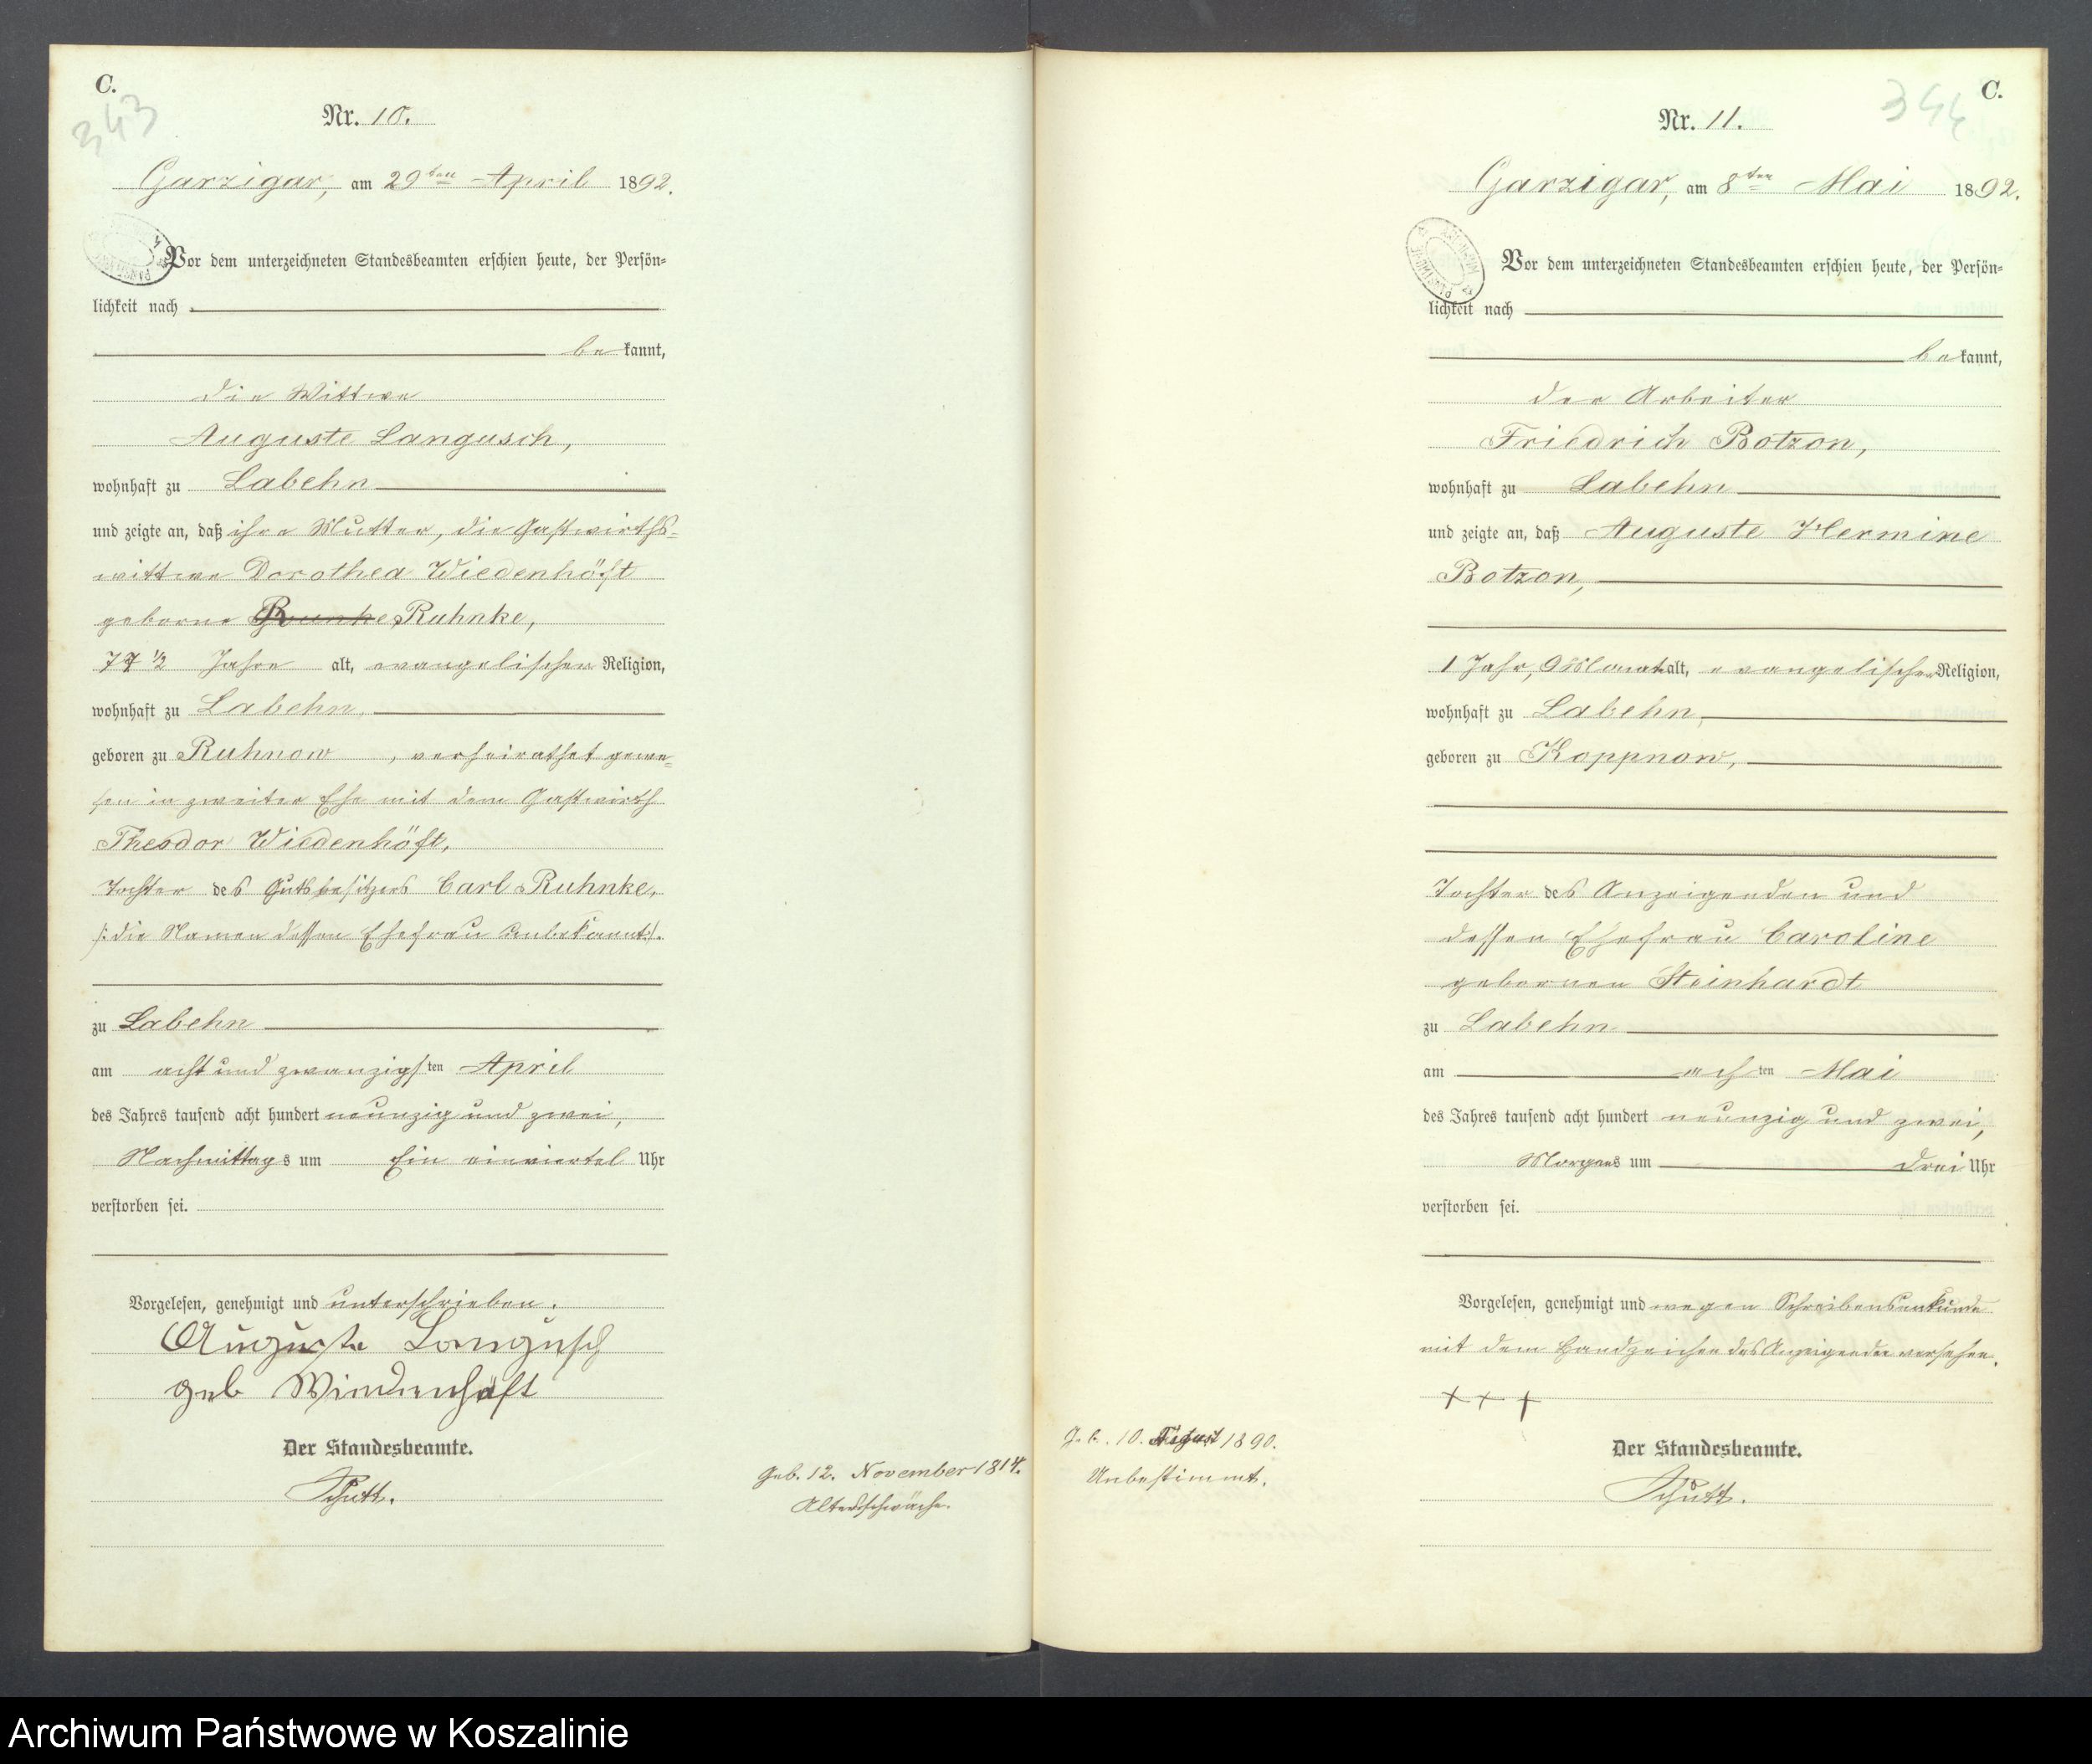 C.
343
Nr. 10.
Garzigar, am 29ten April 1892.
Vor dem unterzeichneten Standesbeamten erschien heute, der Persön-
lichkeit nach
bekannt,
die Wittwe
Auguste Langusch,
wohnhaft zu Labehn
und zeigte an, daß ihre Mutter, die Gastwirths-
wittwe Dorothea Wiedenhöft
geborne Ruhnke,
77 1/2 Jahre alt, evangelischer Religion,
wohnhaft zu Labehn,
geboren zu Ruhnow, verheirathet gewe-
sen in zweiter Ehe mit dem Gastwirth
Theodor Wiedenhöft,
Tochter des Gutsbesitzers Carl Ruhnke,
/: die Namen dessen Ehefrau unbekannt :/.
zu Labehn
am acht und zwanzigsten April
des Jahres tausend acht hundert neunzig und zwei,
Nachmittags um Ein einviertel Uhr
verstorben sei.
Vorgelesen, genehmigt und unterschrieben.
Auguste Langusch
geb Wiedenhöft
Der Standesbeamte.
Schutt.
Geb. 12. November 1814.
Altersschwäche.
C.
344
Nr. 11.
Garzigar, am 8ten Mai 1892.
Vor dem unterzeichneten Standesbeamten erschien heute, der Persön-
lichkeit nach
bekannt,
der Arbeiter
Friedrich Botzon,
wohnhaft zu Labehn
und zeigte an, daß Auguste Hermine
Botzon,
1 Jahr, 9 Monat alt, evangelischer Religion,
wohnhaft zu Labehn,
geboren zu Koppnow,
Tochter des Anzeigenden und
dessen Ehefrau Caroline
gebornen Steinhardt
zu Labehn
am achten Mai
des Jahres tausend acht hundert neunzig und zwei,
Morgens um drei Uhr
verstorben sei.
Vorgelesen, genehmigt und wegen Schreibensunkunde
mit dem Handzeichen des Anzeigenden versehen.
+ + +
Der Standesbeamte.
Schutt.
Geb. 10. August 1890.
Unbestimmt.
Archiwum Państwowe w Koszalinie